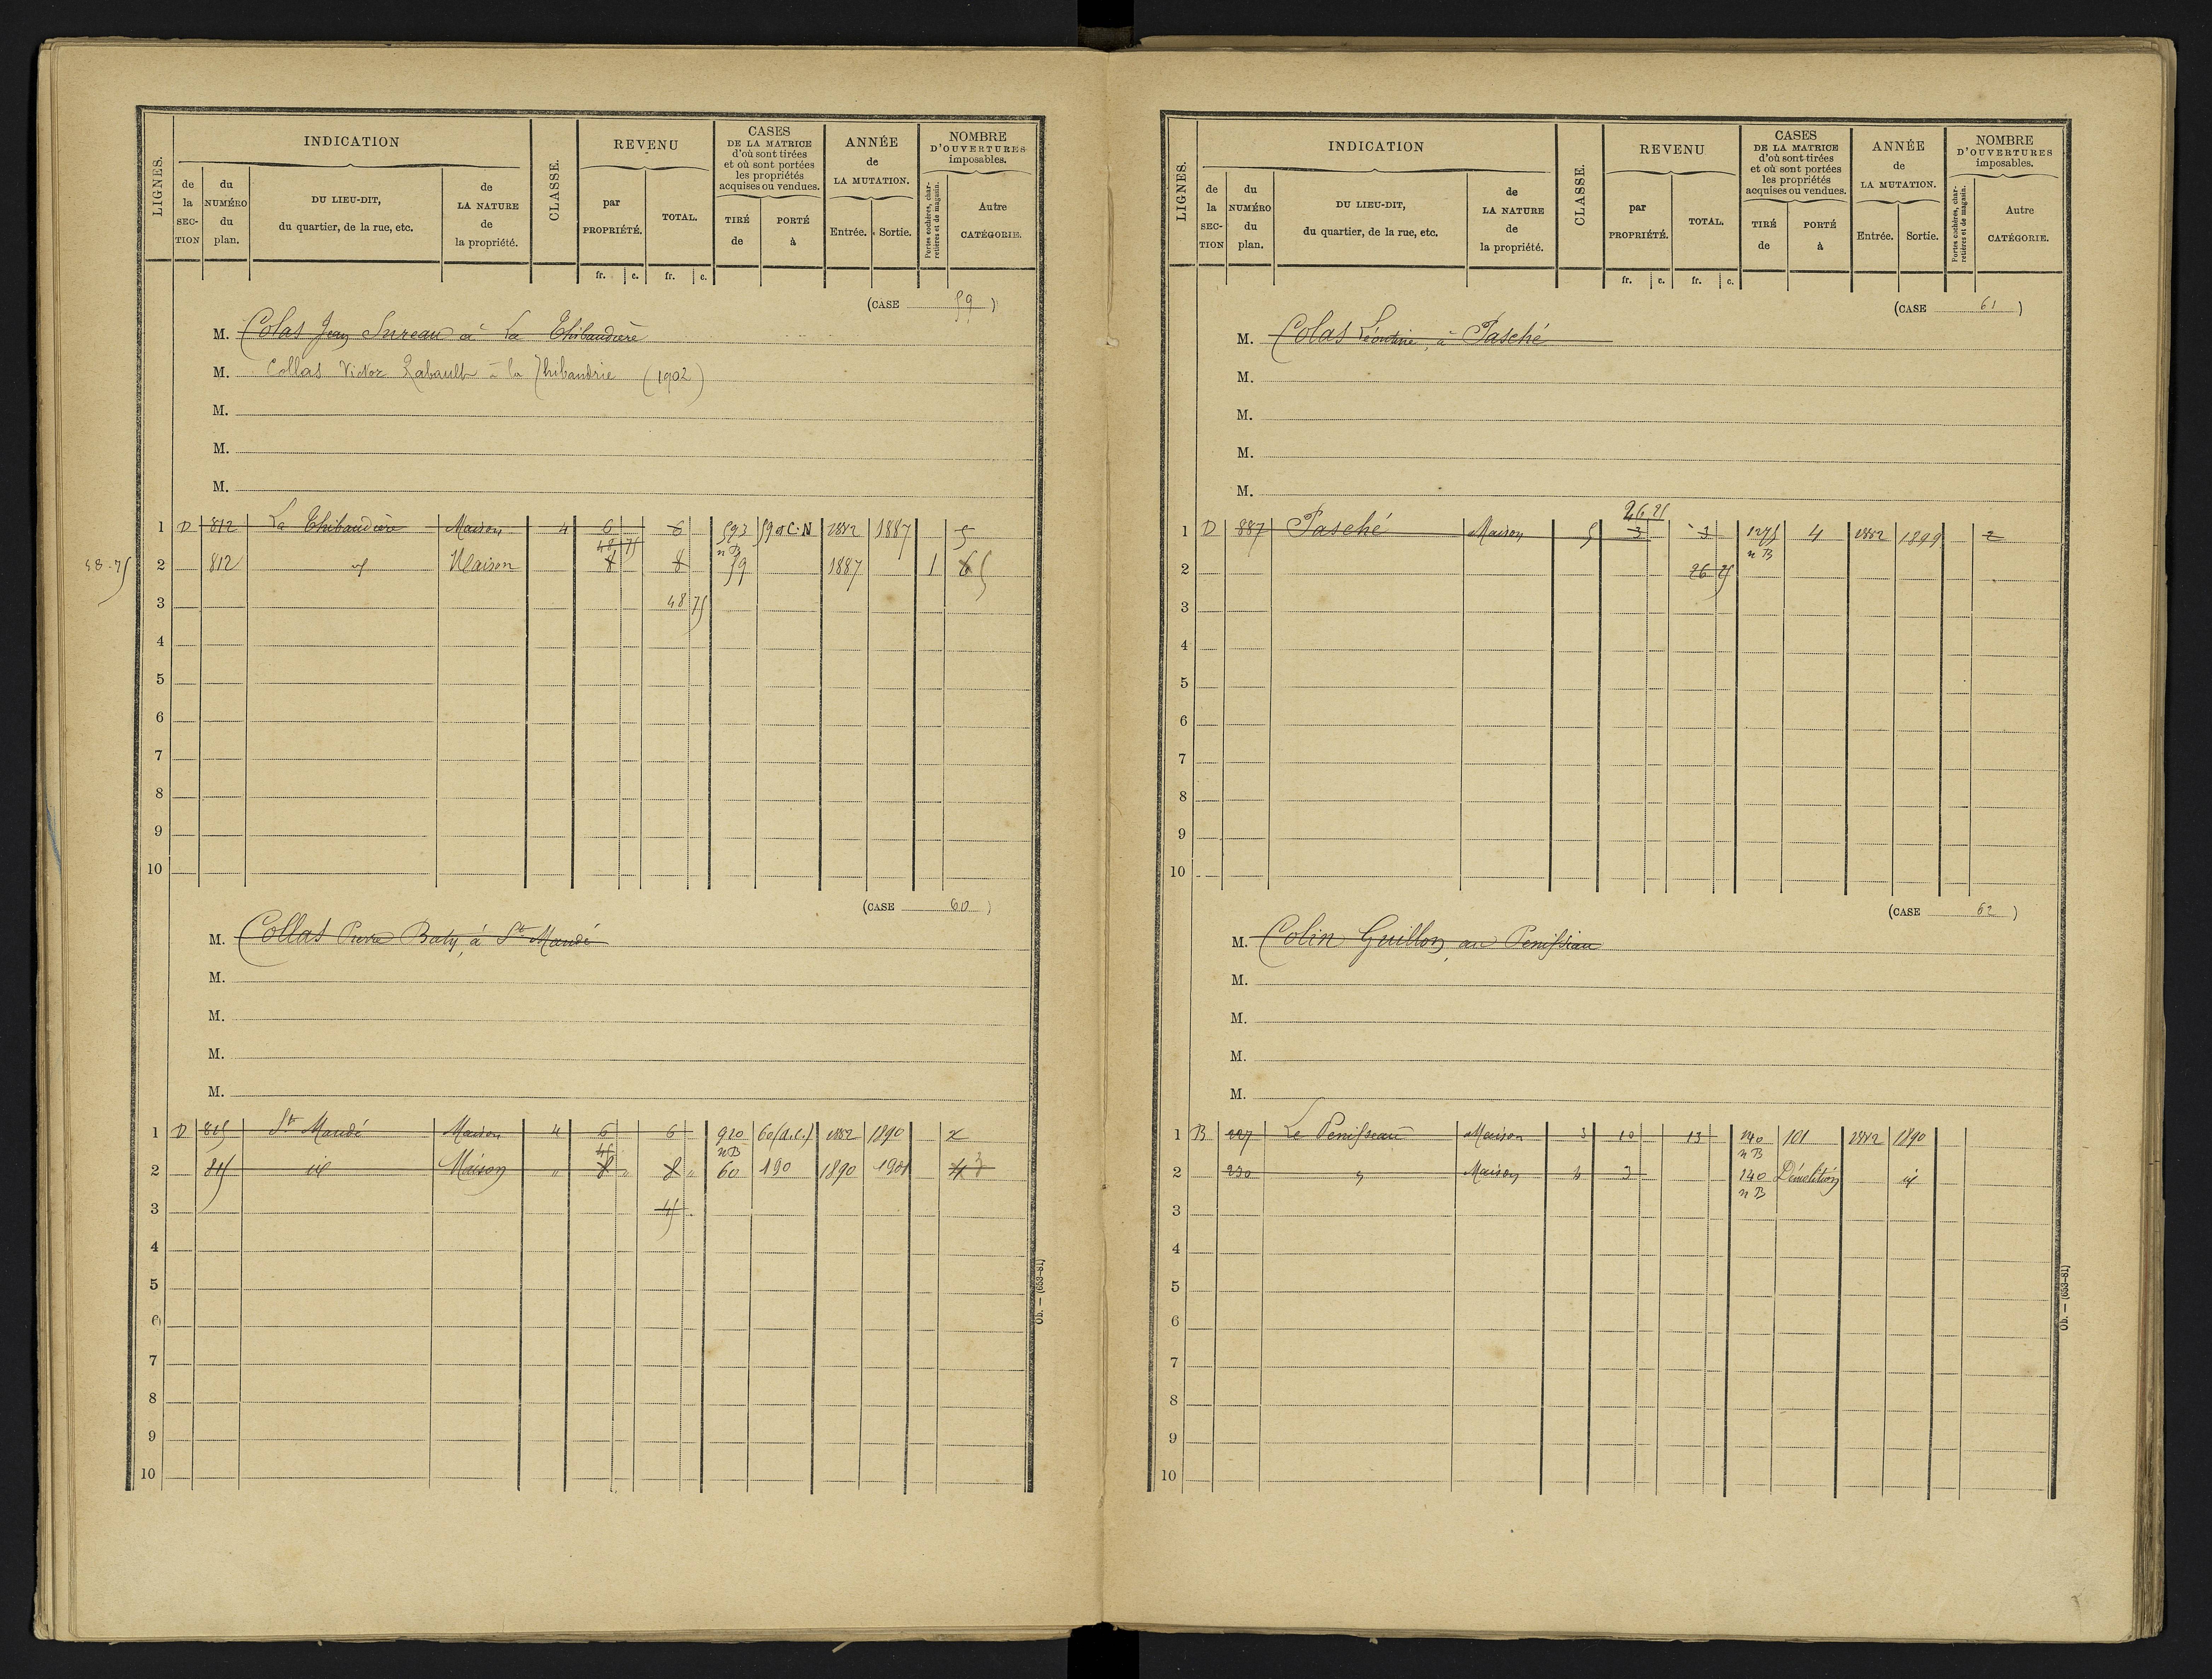 LIGNES.
INDICATION
de la SECTION
du NUMÉRO du plan.
DU LIEU-DIT, du quartier, de la rue, etc.
de LA NATURE de la propriété.
CLASSE.
REVENU
par PROPRIÉTÉ.
TOTAL.
fr. c. fr. c.
CASES DE LA MATRICE d'où sont tirées et où sont portées les propriétés acquises ou vendues.
TIRÉ de
PORTÉ à
ANNÉE de LA MUTATION.
Entrée. Sortie.
NOMBRE D'OUVERTURES imposables.
Portes cochères, charretières et de magasin.
Autre CATÉGORIE.
(CASE 59)
M. Colas Jean Sureau à La Thibaudière
M. Collas Victor Rabault à la Thibaudrie (1902)
M.
M.
M.
1 D 812 La Thibaudière Maison 4 6 6 593 59 a C.N 1882 1887 5
48 75 n B
48-75 2 812 id Maison 8 8 59 1887 1 6 5
3 48 75
4
5
6
7
8
9
10
(CASE 60)
M. Collas Pierre Baty, à St Maudé
M.
M.
M.
M.
1 D 815 St Maudé Maison 4 6 6 920 60 (a.c.) 1882 1890 2
45 n B
2 815 id Maison " 8 " 8 " 60 190 1890 1901 4 3
3 45
4
5
6
7
8
9
10
Ob. — (653-81)
LIGNES.
INDICATION
de la SECTION
du NUMÉRO du plan.
DU LIEU-DIT, du quartier, de la rue, etc.
de LA NATURE de la propriété.
CLASSE.
REVENU
par PROPRIÉTÉ.
TOTAL.
fr. c. fr. c.
CASES DE LA MATRICE d'où sont tirées et où sont portées les propriétés acquises ou vendues.
TIRÉ de
PORTÉ à
ANNÉE de LA MUTATION.
Entrée. Sortie.
NOMBRE D'OUVERTURES imposables.
Portes cochères, charretières et de magasin.
Autre CATÉGORIE.
(CASE 61)
M. Colas Léontine, à Pasché
M.
M.
M.
M.
26 25
1 D 887 Pasché Maison 5 3 3 1275 4 1882 1899 2
n B
2 26 25
3
4
5
6
7
8
9
10
(CASE 62)
M. Colin Guillon, au Penisseau
M.
M.
M.
M.
1 B 227 Le Penisseau Maison 3 10 13 140 101 1882 1890
n B
2 230 " Maison 4 3 140 Démolition id
n B
3
4
5
6
7
8
9
10
Ob. — (653-81)